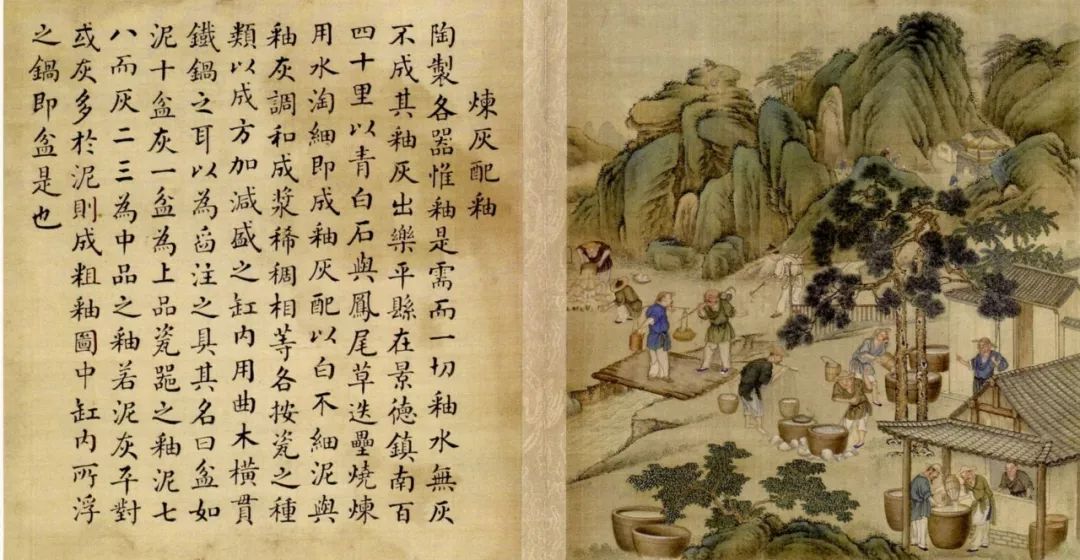 煉灰配釉
陶製各器惟釉是需而一切釉水無灰
不成其釉灰出樂平縣在景德鎮南百
四十里以青白石與鳳尾草迭壘燒煉
用水淘細即成釉灰配以白不細泥與
釉灰調和成漿稀稠相等各按瓷之種
類以成方加減盛之缸內用曲木橫貫
鐵鍋之耳以為舀注之具其名曰盆如
泥十盆灰一盆為上品瓷器之釉泥七
八而灰二三為中品之釉若泥灰平對
或灰多於泥則成粗釉圖中缸內所浮
之鍋即盆是也